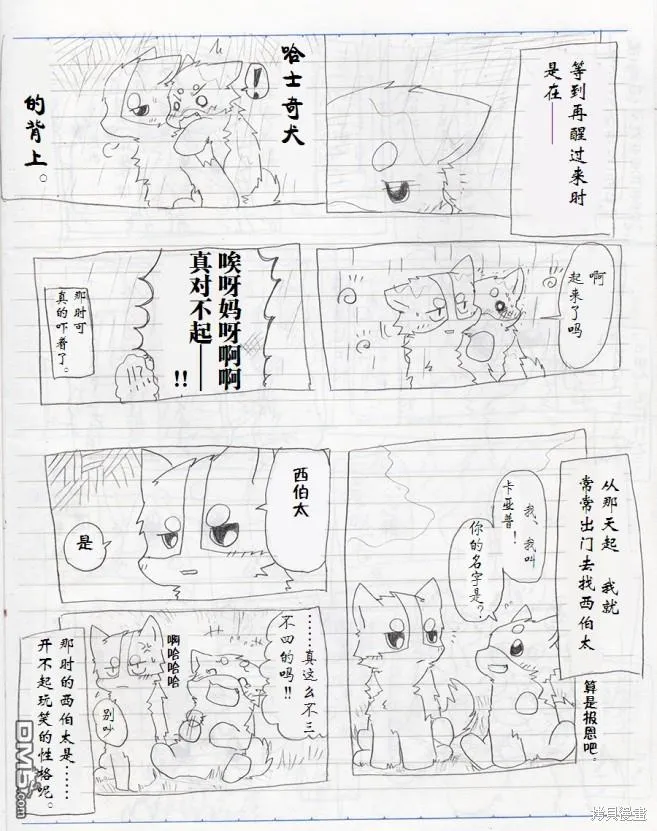 等到再醒过来时
是在——
哈士奇犬
的背上。
啊
起来了吗
唉呀妈呀啊啊
真对不起——!!
那时可
真的吓着了。
!!?
从那天起 我就
常常出门去找西伯太
算是报恩吧。
我、我叫
卡亚普!
你的名字是?
西伯太
是
……真这么不三
不四的吗!!
啊哈哈哈
别吵
那时的西伯太是……
开不起玩笑的性格呢。
DM5.com
拷贝漫畫